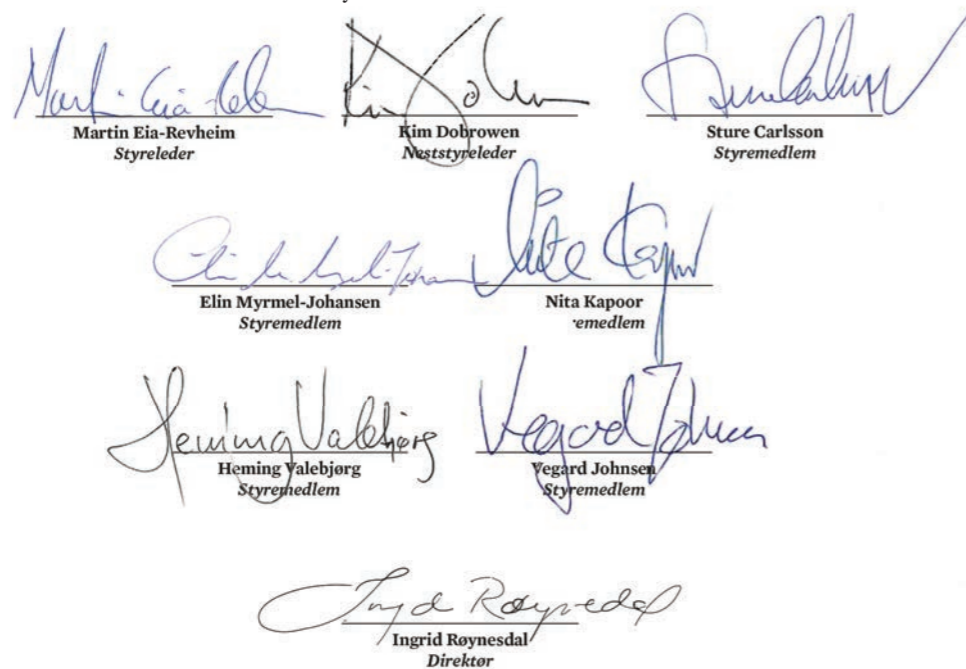 Martin Eia-Revheim
Styreleder
Kim Dobrowen
Neststyreleder
Sture Carlsson
Styremedlem
Elin Myrmel-Johansen
Styremedlem
Nita Kapoor
emedlem
Heming Valebjørg
Heming Valebjørg
Styremedlem
Vegard Johnsen
Vegard Johnsen
Styremedlem
Ingrid Røynesdal
Direktør